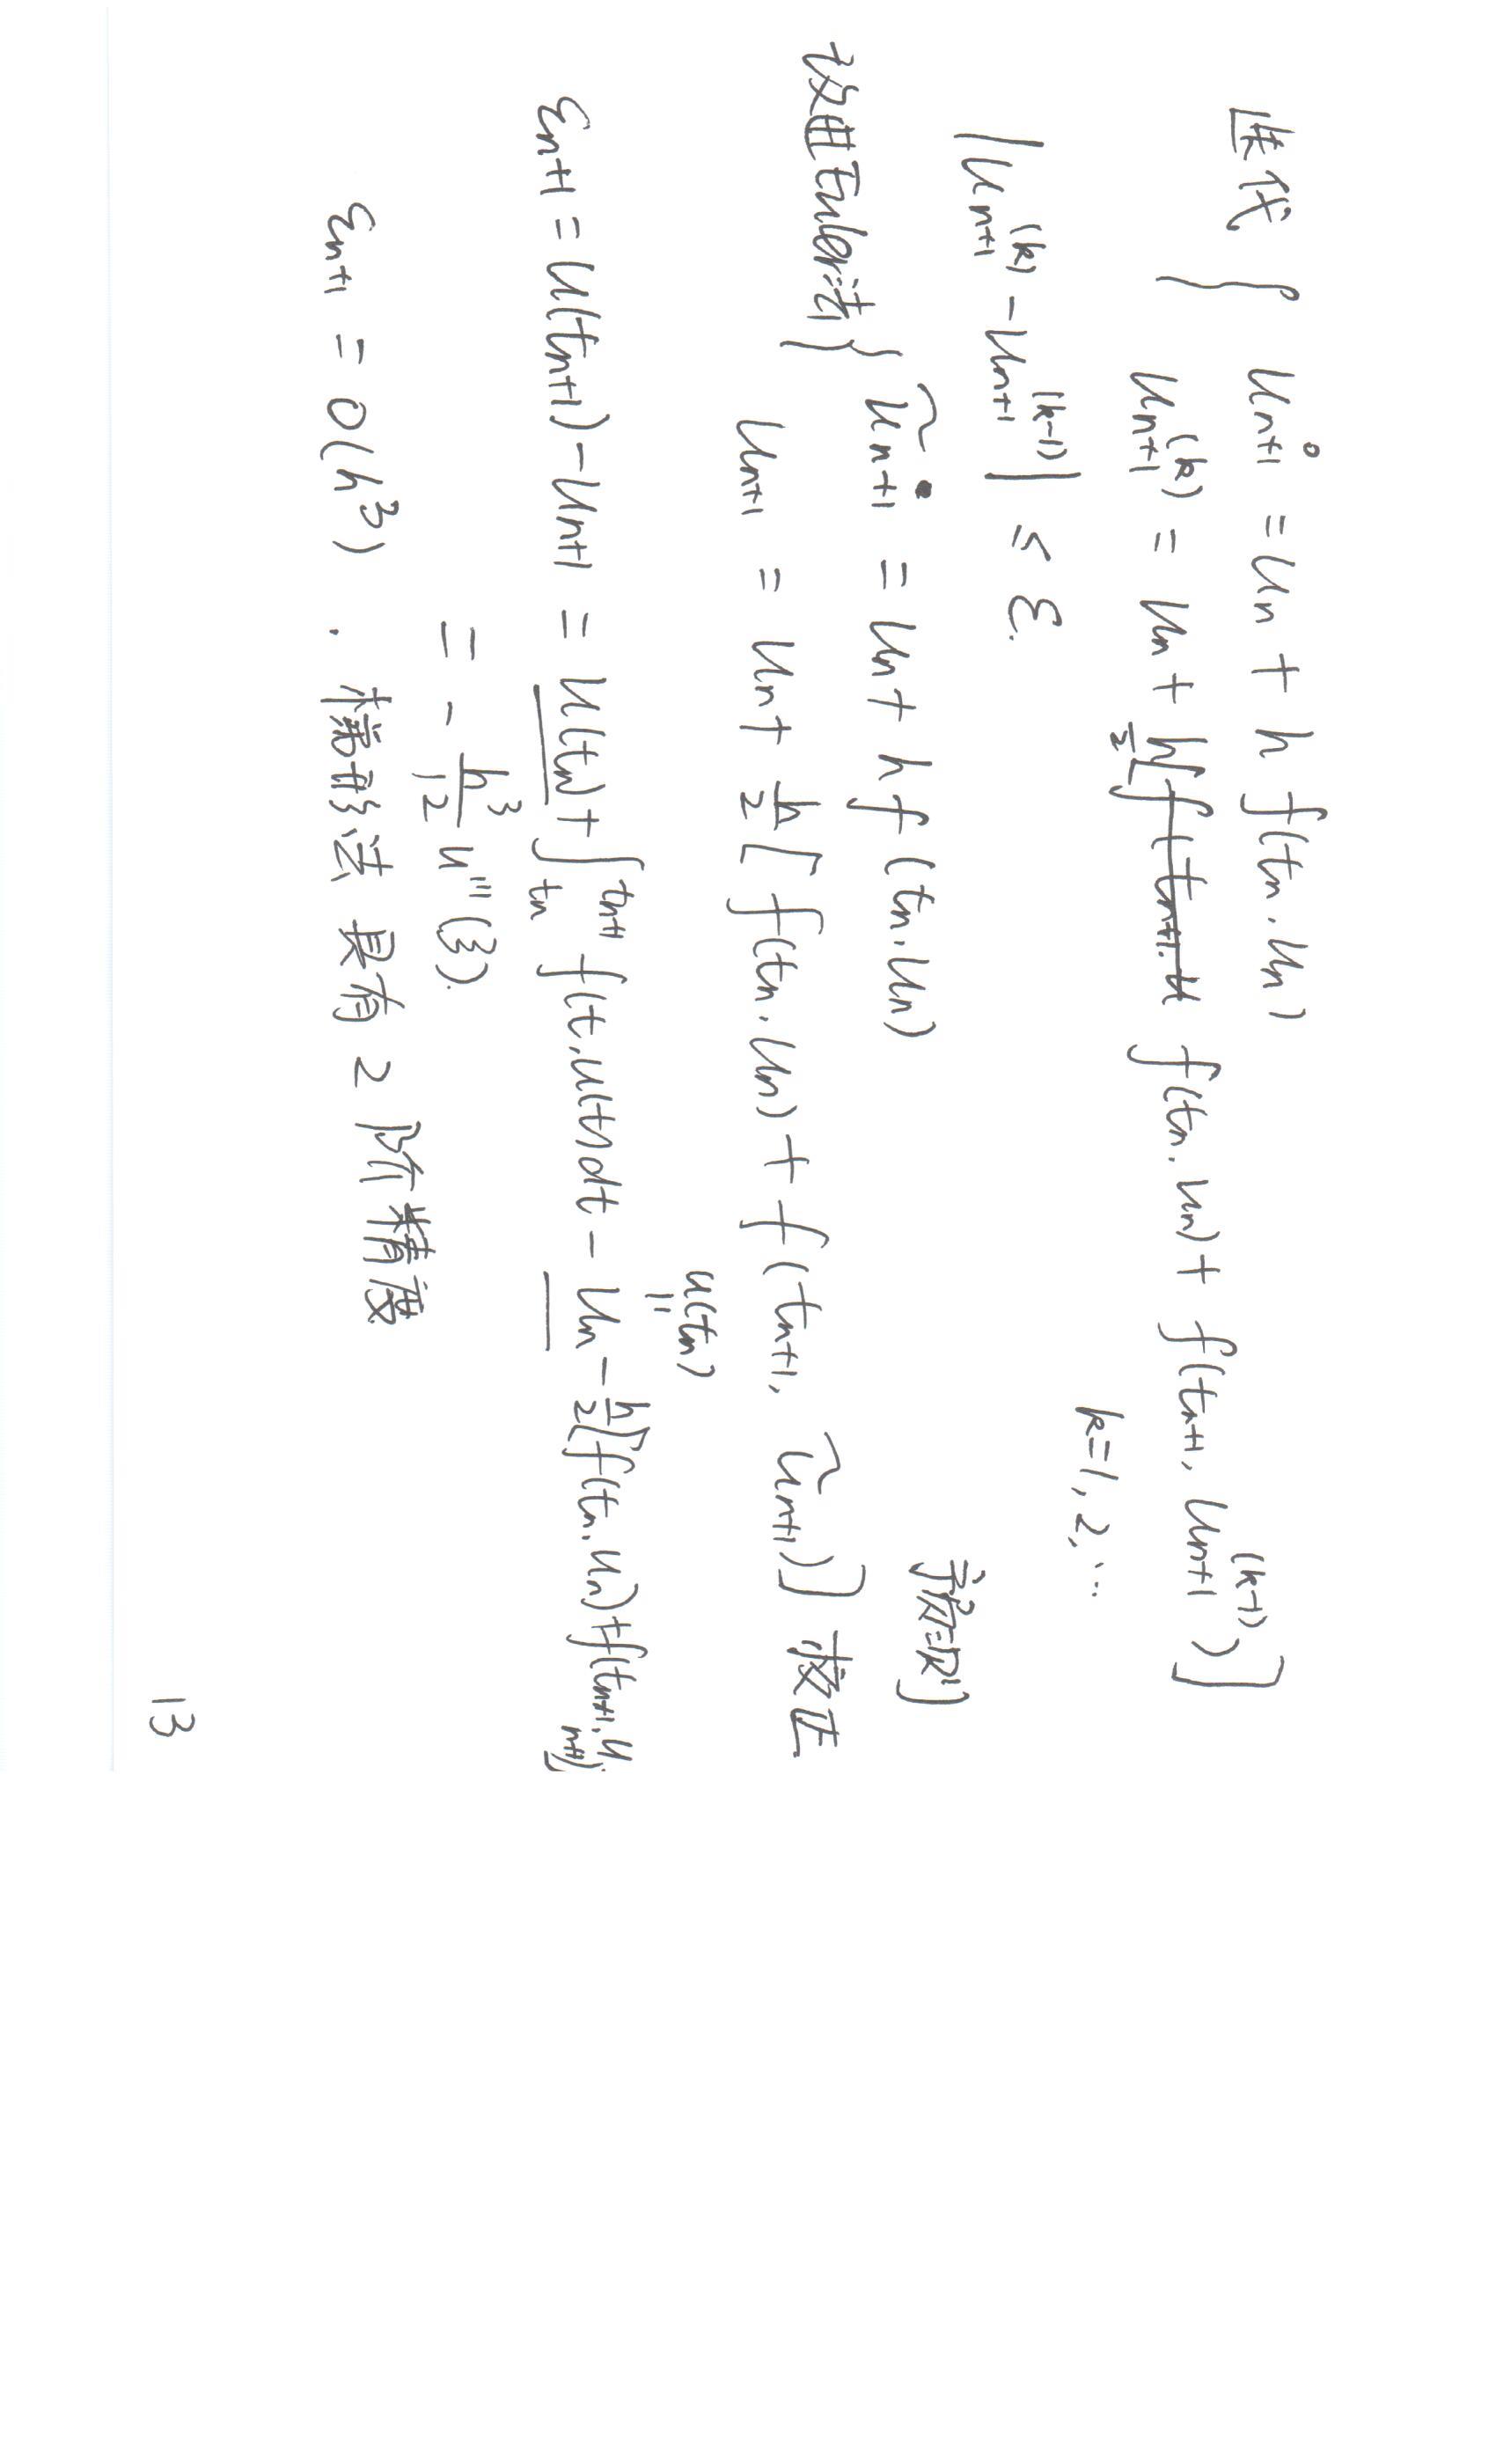 迭代 { u_{n+1}^0 = u_n + h f(t_n, u_n)
u_{n+1}^{(k)} = u_n + h/2 [ f(t_n, u_n) + f(t_{n+1}, u_{n+1}^{(k-1)}) ]
k=1, 2, …
|u_{n+1}^{(k)} - u_{n+1}^{(k-1)}| ≤ ε.
改进Euler法 { ũ_{n+1} = u_n + h f(t_n, u_n) 预测
u_{n+1} = u_n + h/2 [ f(t_n, u_n) + f(t_{n+1}, ũ_{n+1}) ] 校正
u(t_n)
||
ε_{n+1} = u(t_{n+1}) - u_{n+1} = u(t_n) + ∫_{t_n}^{t_{n+1}} f(t, u(t)) dt - u_n - h/2 [f(t_n, u_n) + f(t_{n+1}, u_{n+1})]
= - h^3/12 u'''(ξ).
ε_{n+1} = O(h^3) . 梯形法 具有 2 阶精度
13